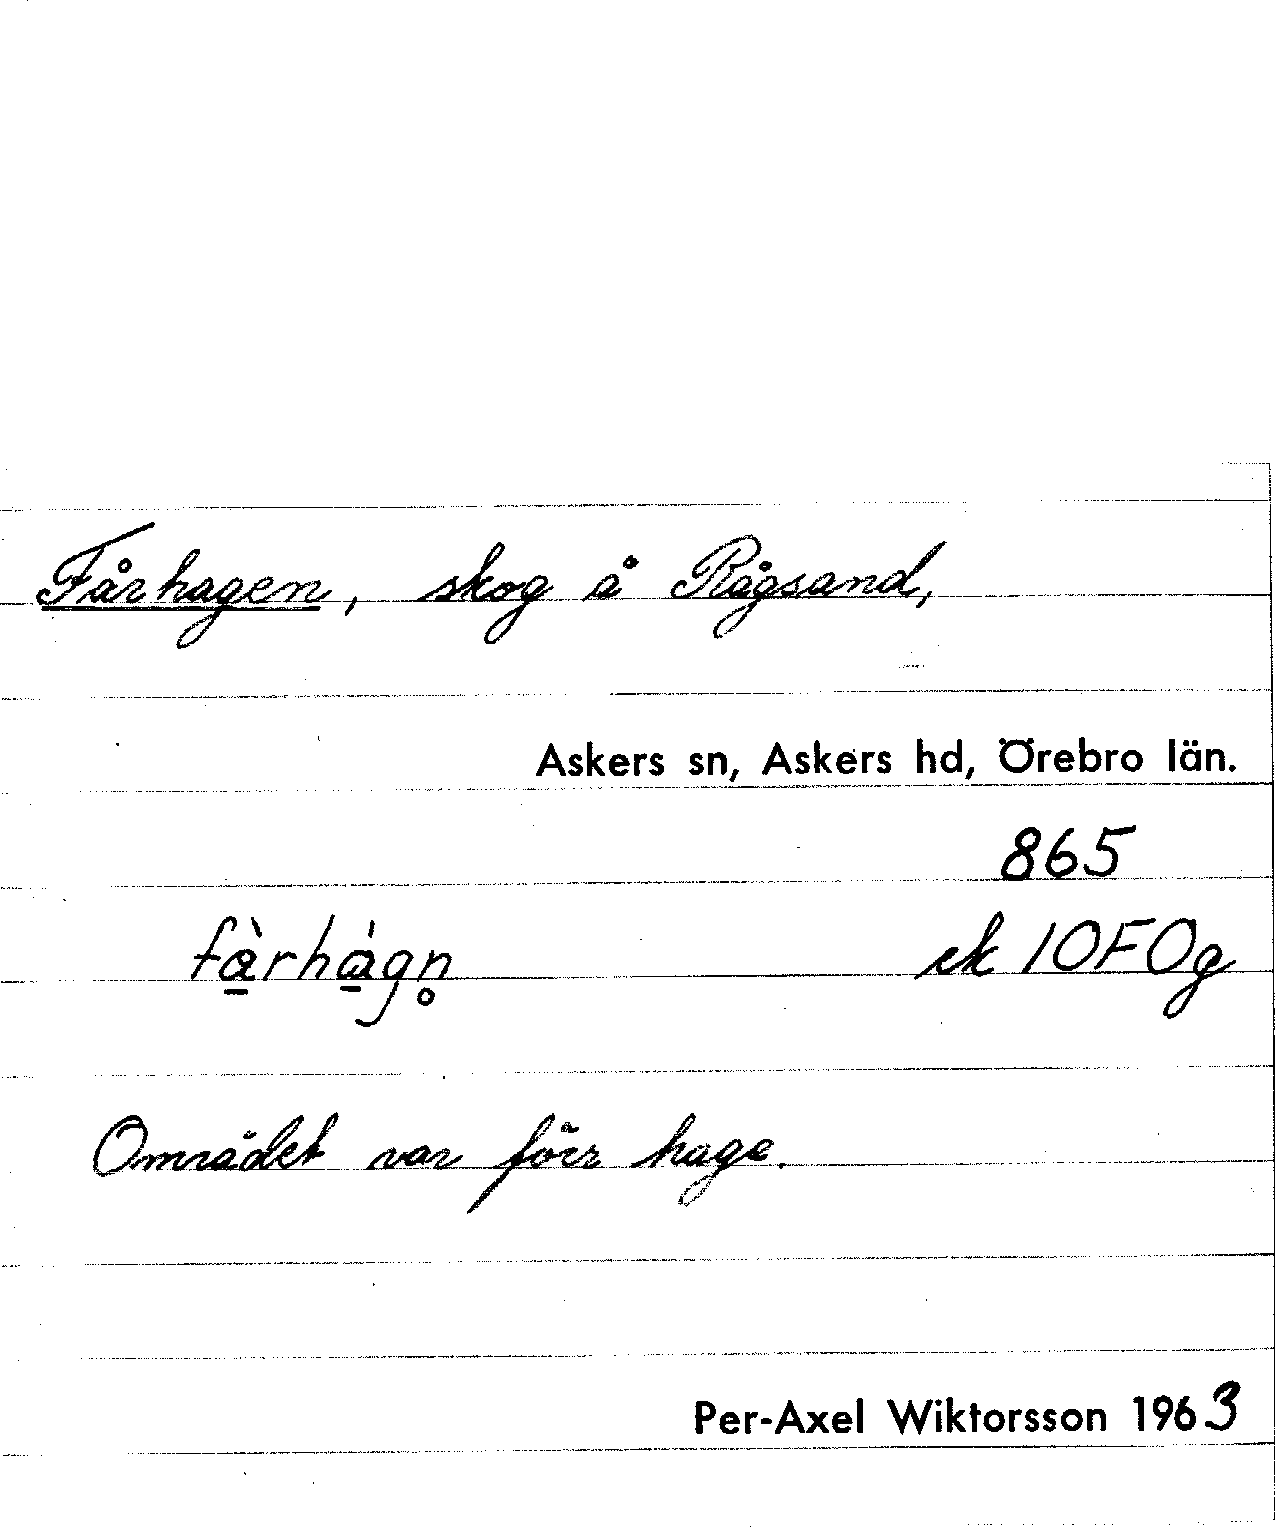 Fårhagen, skog å Rågsand,
Askers sn, Askers hd, Örebro län.
865
fà̱rhá̱gn̥ ek 10F0g
Området var förr hage.
Per-Axel Wiktorsson 1963